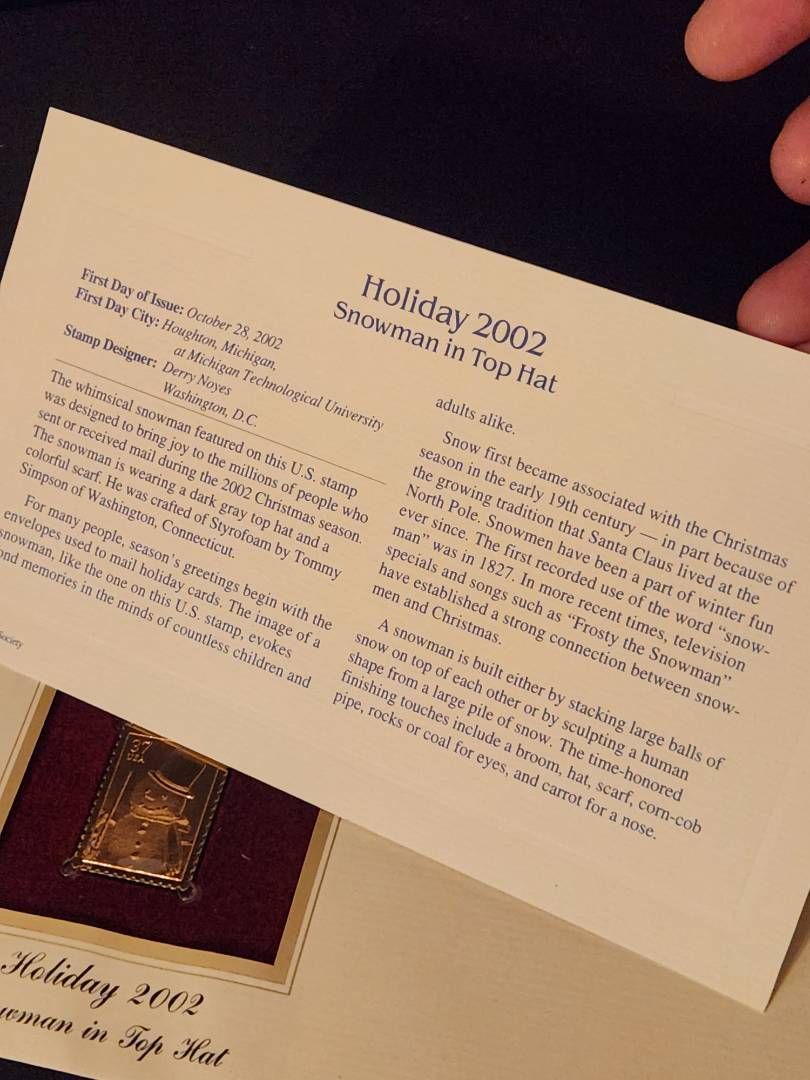 Holiday 2002
Snowman in Top Hat
First Day of Issue: October 28, 2002
First Day City: Houghton, Michigan,
at Michigan Technological University
Stamp Designer: Derry Noyes
Washington, D.C.
The whimsical snowman featured on this U.S. stamp
was designed to bring joy to the millions of people who
sent or received mail during the 2002 Christmas season.
The snowman is wearing a dark gray top hat and a
colorful scarf. He was crafted of Styrofoam by Tommy
Simpson of Washington, Connecticut.
For many people, season's greetings begin with the
envelopes used to mail holiday cards. The image of a
snowman, like the one on this U.S. stamp, evokes
ond memories in the minds of countless children and
adults alike.
Snow first became associated with the Christmas
season in the early 19th century — in part because of
the growing tradition that Santa Claus lived at the
North Pole. Snowmen have been a part of winter fun
ever since. The first recorded use of the word "snow-
man" was in 1827. In more recent times, television
specials and songs such as "Frosty the Snowman"
have established a strong connection between snow-
men and Christmas.
A snowman is built either by stacking large balls of
snow on top of each other or by sculpting a human
shape from a large pile of snow. The time-honored
finishing touches include a broom, hat, scarf, corn-cob
pipe, rocks or coal for eyes, and carrot for a nose.
Society
37
USA
Holiday 2002
owman in Top Hat